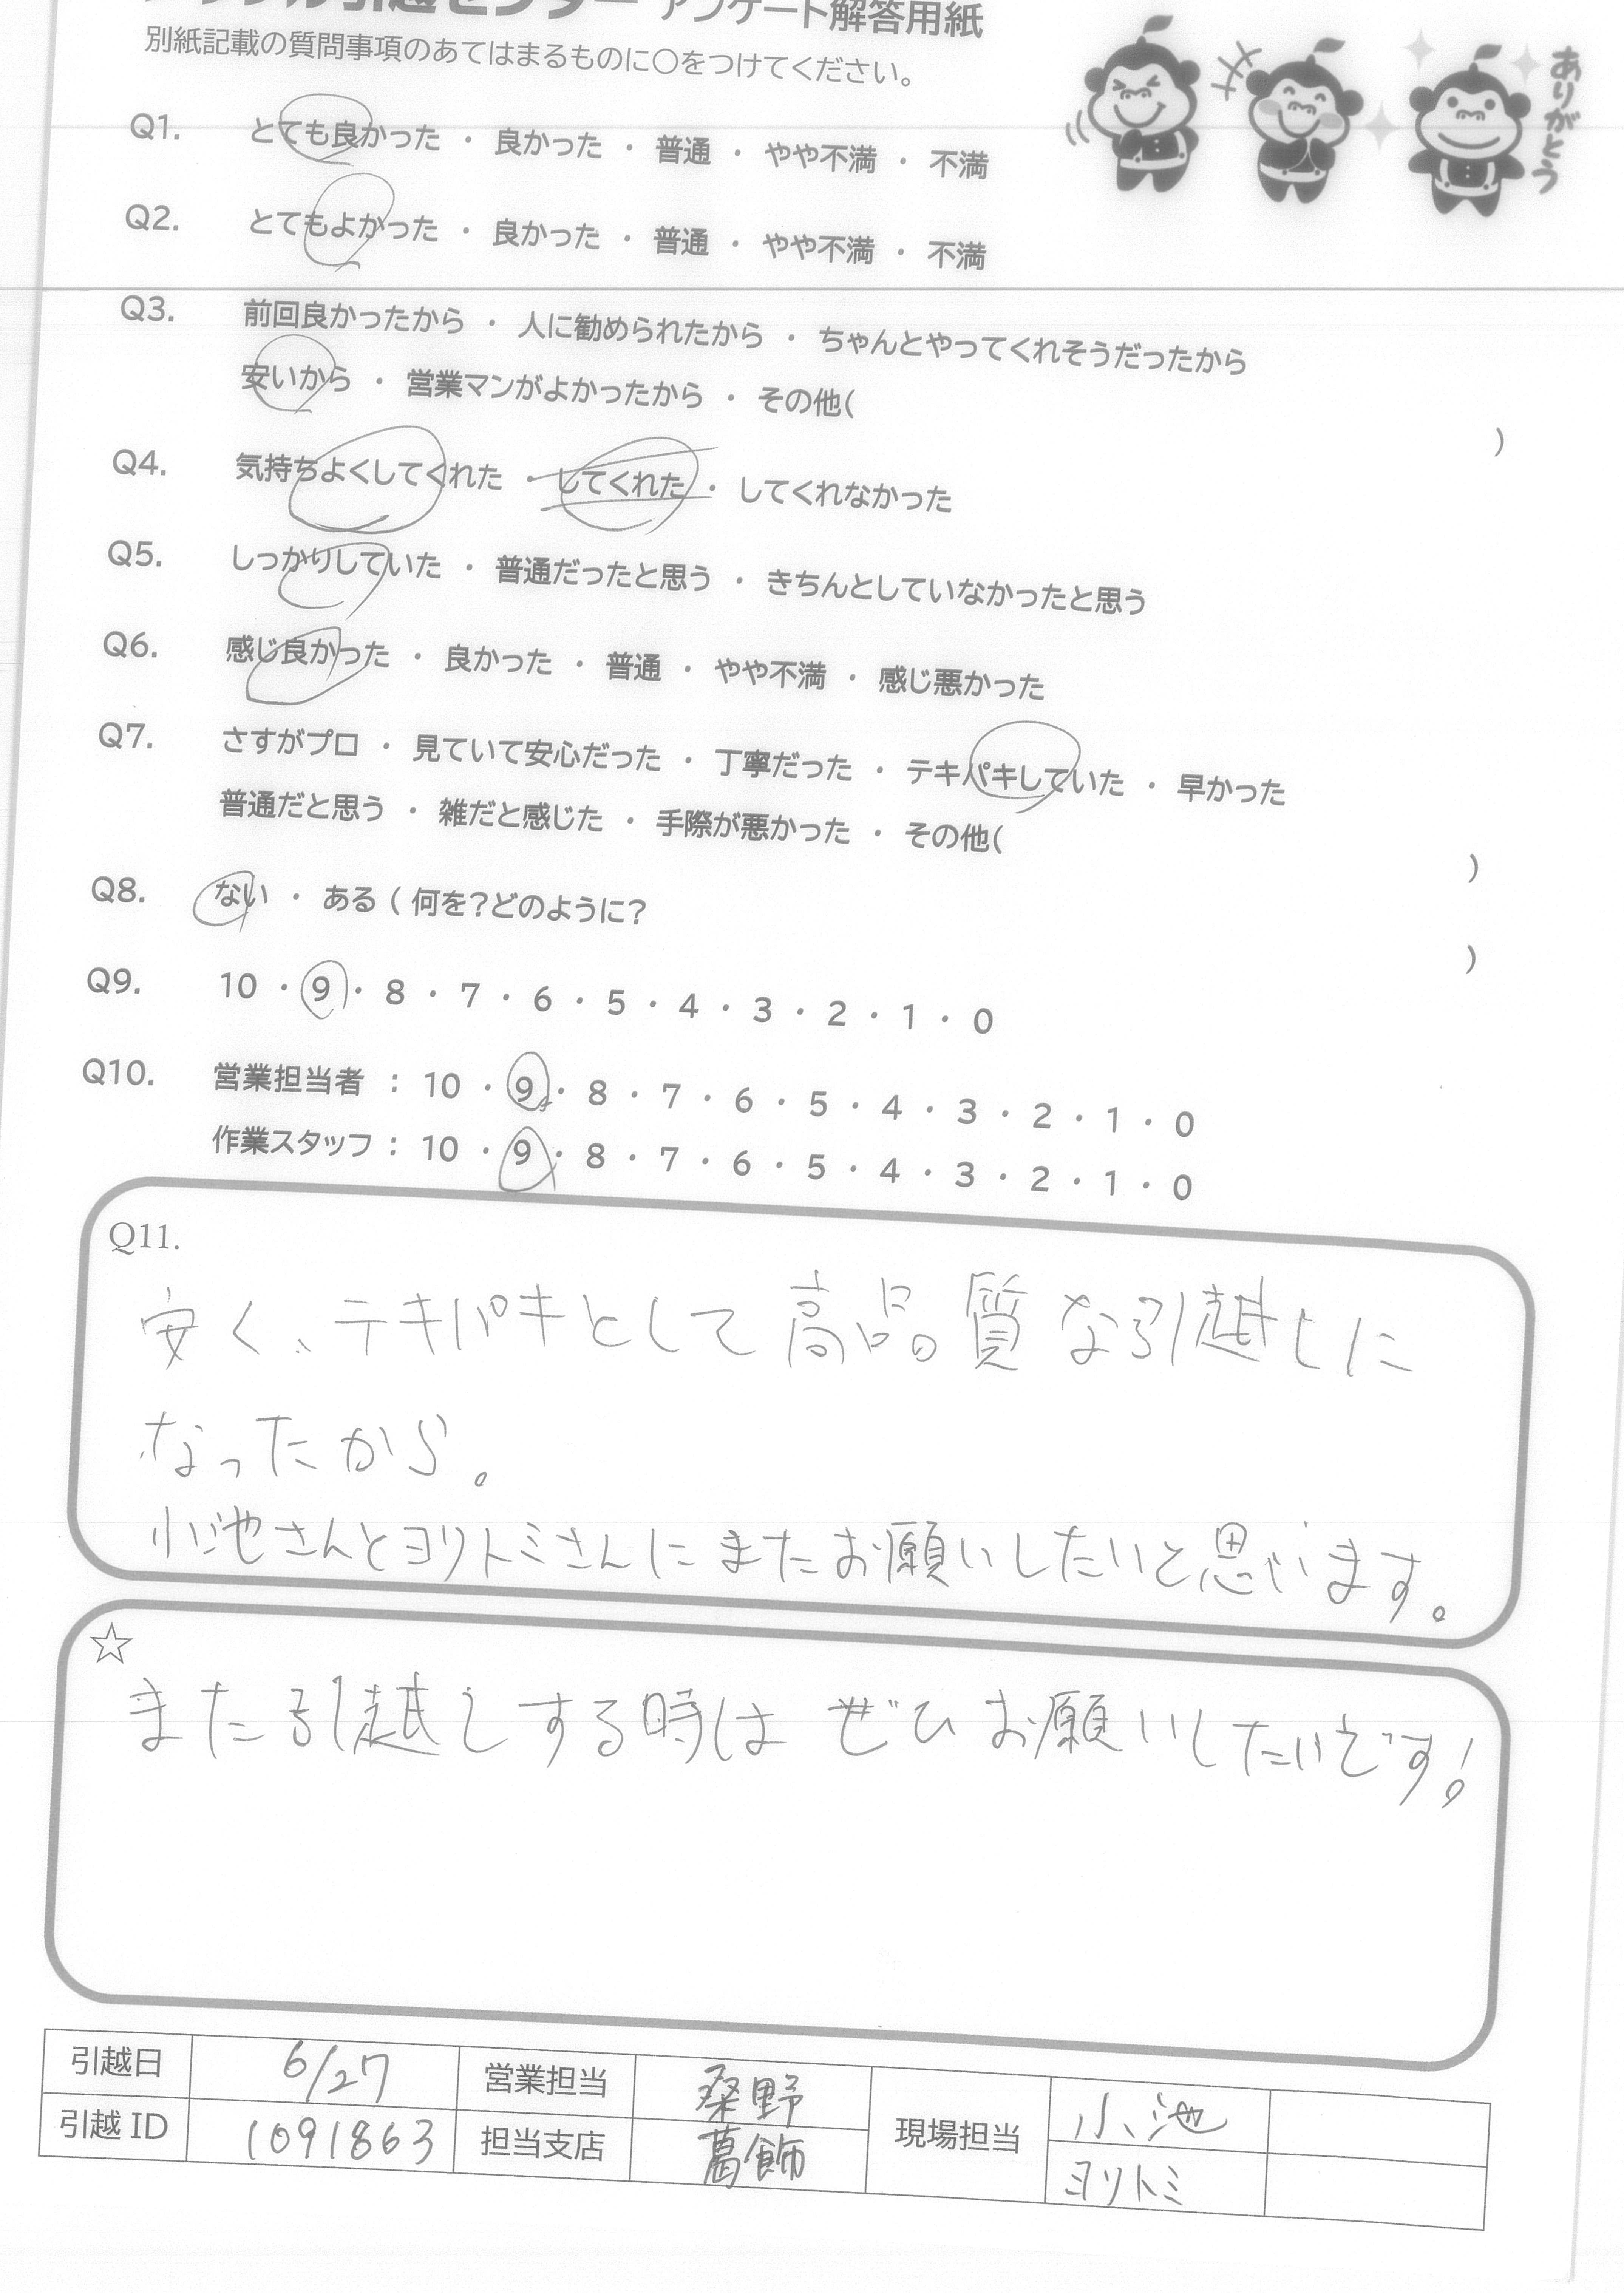 引越センター アンケート解答用紙
別紙記載の質問事項のあてはまるものに○をつけてください。
ありがとう
Q1. とても良かった ・ 良かった ・ 普通 ・ やや不満 ・ 不満
Q2. とてもよかった ・ 良かった ・ 普通 ・ やや不満 ・ 不満
Q3. 前回良かったから ・ 人に勧められたから ・ ちゃんとやってくれそうだったから
安いから ・ 営業マンがよかったから ・ その他( )
Q4. 気持ちよくしてくれた ・ してくれた ・ してくれなかった
Q5. しっかりしていた ・ 普通だったと思う ・ きちんとしていなかったと思う
Q6. 感じ良かった ・ 良かった ・ 普通 ・ やや不満 ・ 感じ悪かった
Q7. さすがプロ ・ 見ていて安心だった ・ 丁寧だった ・ テキパキしていた ・ 早かった
普通だと思う ・ 雑だと感じた ・ 手際が悪かった ・ その他( )
Q8. ない ・ ある ( 何を?どのように? )
Q9. 10 ・ 9 ・ 8 ・ 7 ・ 6 ・ 5 ・ 4 ・ 3 ・ 2 ・ 1 ・ 0
Q10. 営業担当者 : 10 ・ 9 ・ 8 ・ 7 ・ 6 ・ 5 ・ 4 ・ 3 ・ 2 ・ 1 ・ 0
作業スタッフ : 10 ・ 9 ・ 8 ・ 7 ・ 6 ・ 5 ・ 4 ・ 3 ・ 2 ・ 1 ・ 0
Q11.
安く、テキパキとして高品質な引越しに
なったから。
小池さんとヨリトミさんにまたお願いしたいと思います。
☆
また引越しする時はぜひお願いしたいです!
引越日 6/27 営業担当 桑野 現場担当 小池
引越ID 1091863 担当支店 葛飾 ヨリトミ